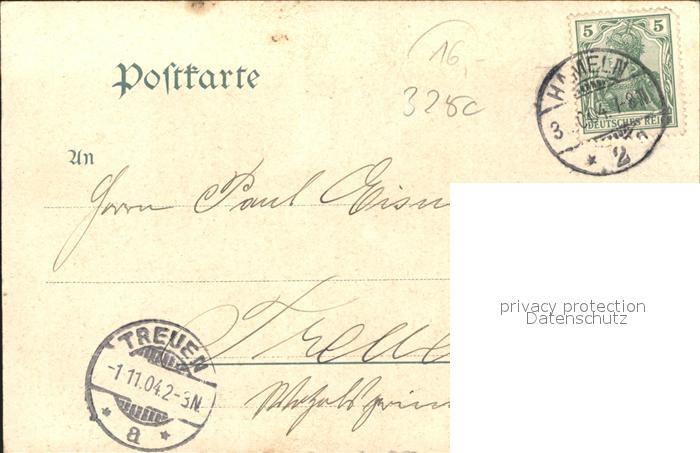 16,-
328c
Postkarte
5 5
DEUTSCHES REICH
HAMELN
3
2
An
Herrn Paul
privacy protection
Datenschutz
TREUEN
-1.11.04.2-3N
* a *